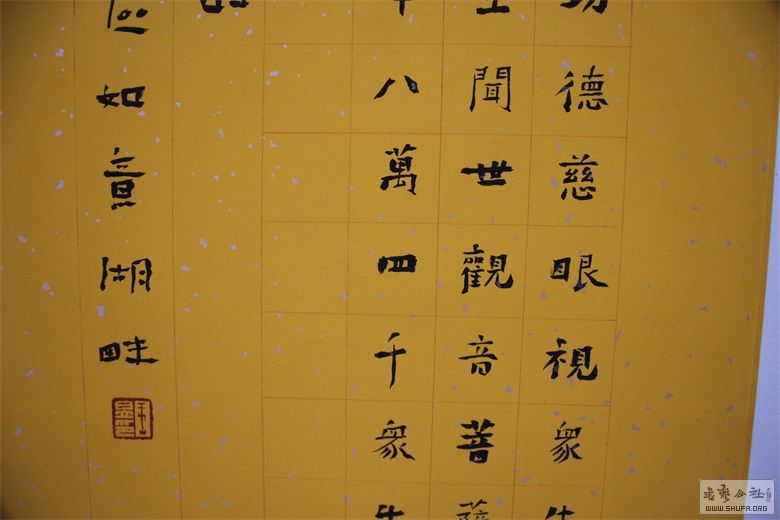 德慈眼視衆生
聞世觀音菩薩
八萬四千衆生
如意湖畔
WWW.SHUFA.ORG